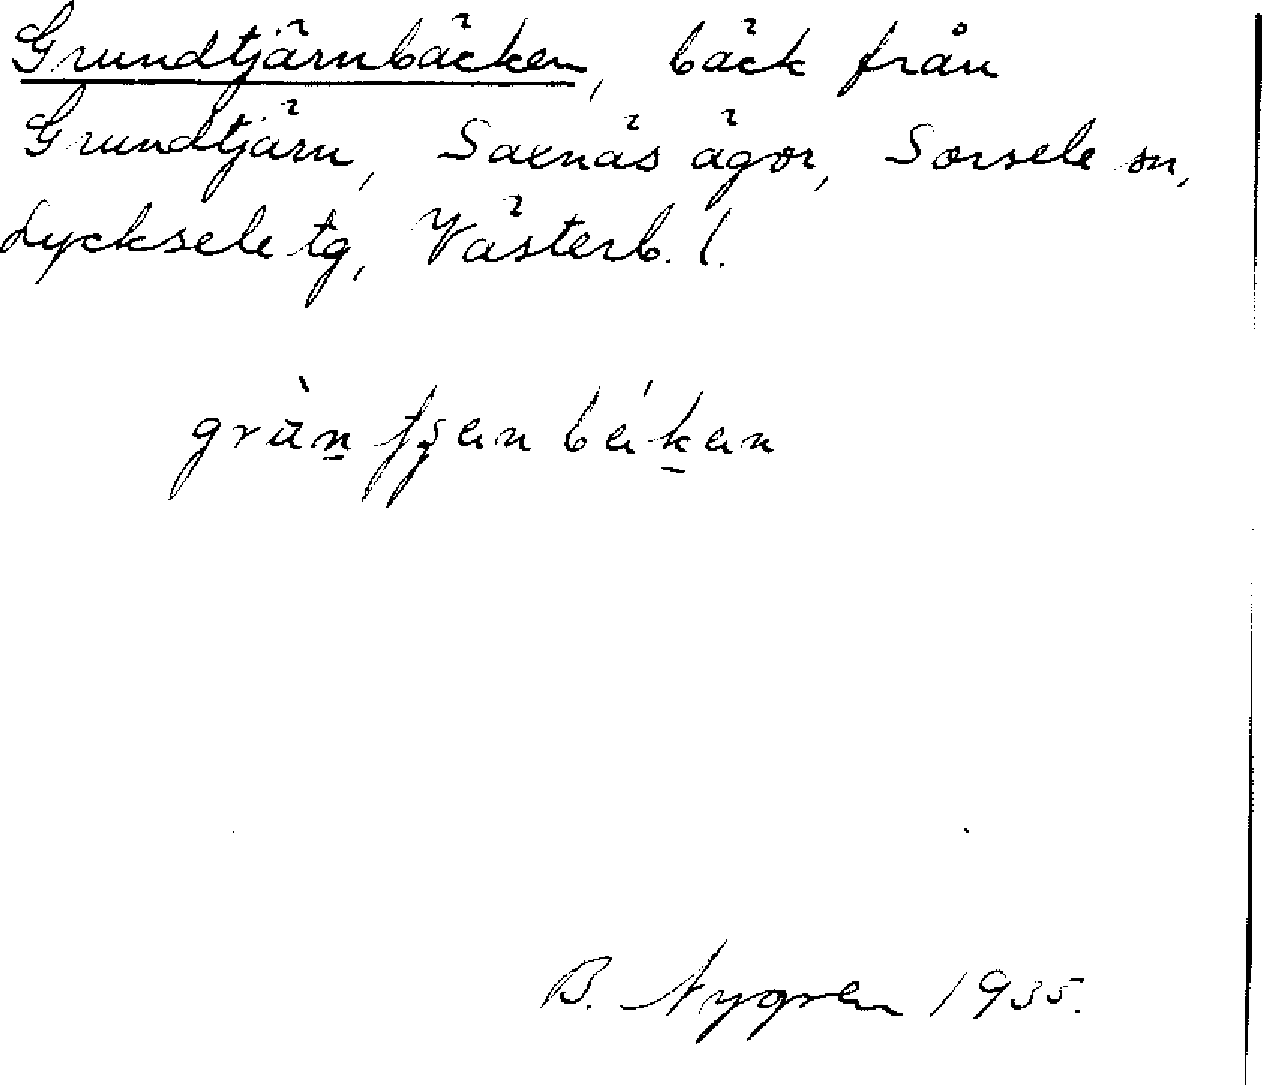 Grundtjärnbäcken, bäck från
Grundtjärn, Saxnäs ägor, Sorsele sn,
Lycksele tg, Västerb. l.
B. Nygren 1935.